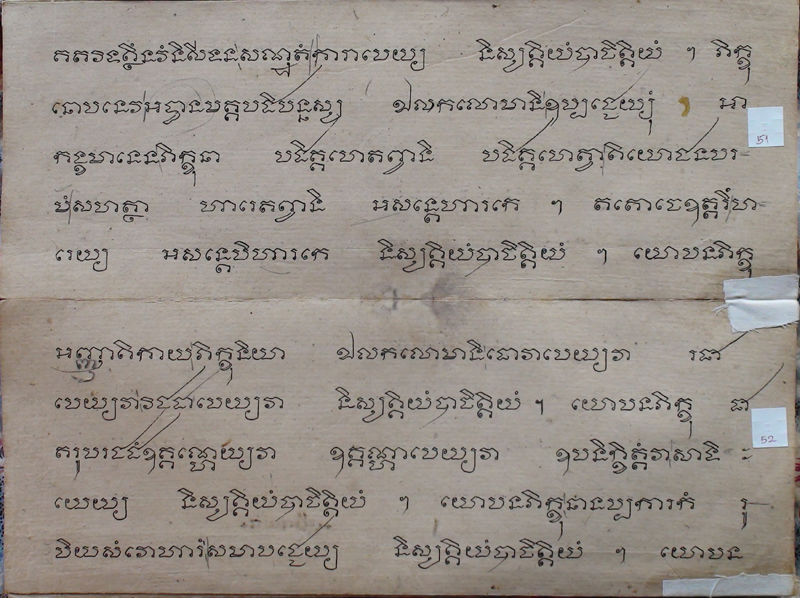 គតវិទត្ថឹនវំនិសីទនសន្ថតំការាបេយ្យ និស្សគ្គិយំបាចិត្តិយំ ៗ ភិក្ខុ
នោបនេវអទ្ធានមគ្គបដិបន្នស្ស ឯលកលោមានិឧប្បជ្ជេយ្យុំ អា
កង្ខមានេនភិក្ខុនា បដិគ្គហេតព្វានិ បដិគ្គហេត្វាតិយោជនបរ
មំសហត្ថា ហារេតព្វានិ អសន្តេហារកេ ៗ តតោចេឧត្តរឹហ
រេយ្យ អសន្តេបិហារកេ និស្សគ្គិយំបាចិត្តិយំ ៗ យោបនភិក្ខុ
51
អញ្ញាតិកាយភិក្ខុនិយា ឯលកលោមានិធោវាបេយ្យវា រជា
បេយ្យវាវិជដាបេយ្យវា និស្សគ្គិយំបាចិត្តិយំ ៗ យោបនភិក្ខុ ជា
តរុបរជតំឧគ្គណ្ហេយ្យវា ឧគ្គណ្ហាបេយ្យវា ឧបនិក្ខិត្តំវាសាទិ
យេយ្យ និស្សគ្គិយំបាចិត្តិយំ ៗ យោបនភិក្ខុនានប្បការកំ រូ
បិយសំវោហារំសមាបជ្ជេយ្យ និស្សគ្គិយំបាចិត្តិយំ ៗ យោបន
52